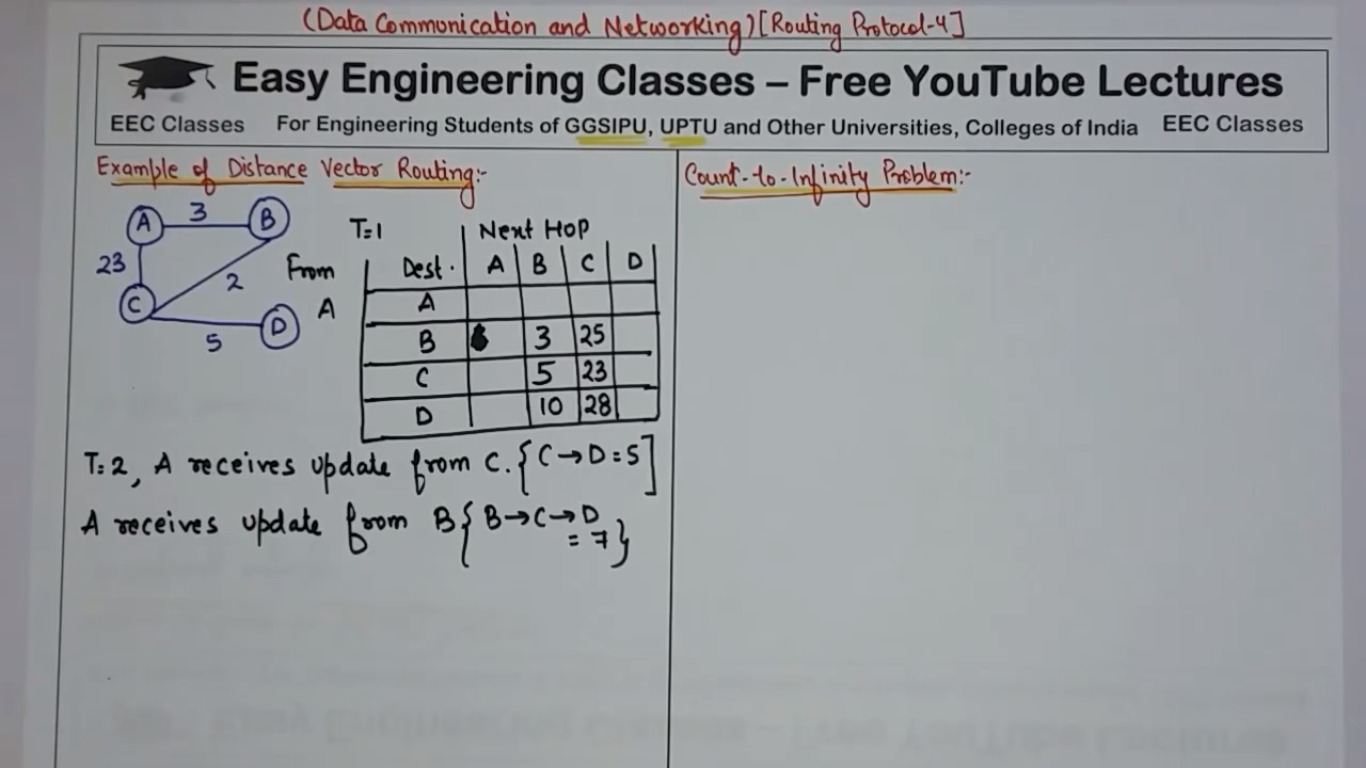 (Data Communication and Networking) [Routing Protocol-4]
Easy Engineering Classes – Free YouTube Lectures
EEC Classes For Engineering Students of GGSIPU, UPTU and Other Universities, Colleges of India EEC Classes
Example of Distance Vector Routing:-
A 3 B
23
2
C
5
D
T=1 Next Hop
From A
Dest. A B C D
A
B 3 25
C 5 23
D 10 28
T=2, A receives update from C. {C→D=5]
A receives update from B {B→C→D
=7}
Count-to-Infinity Problem:-